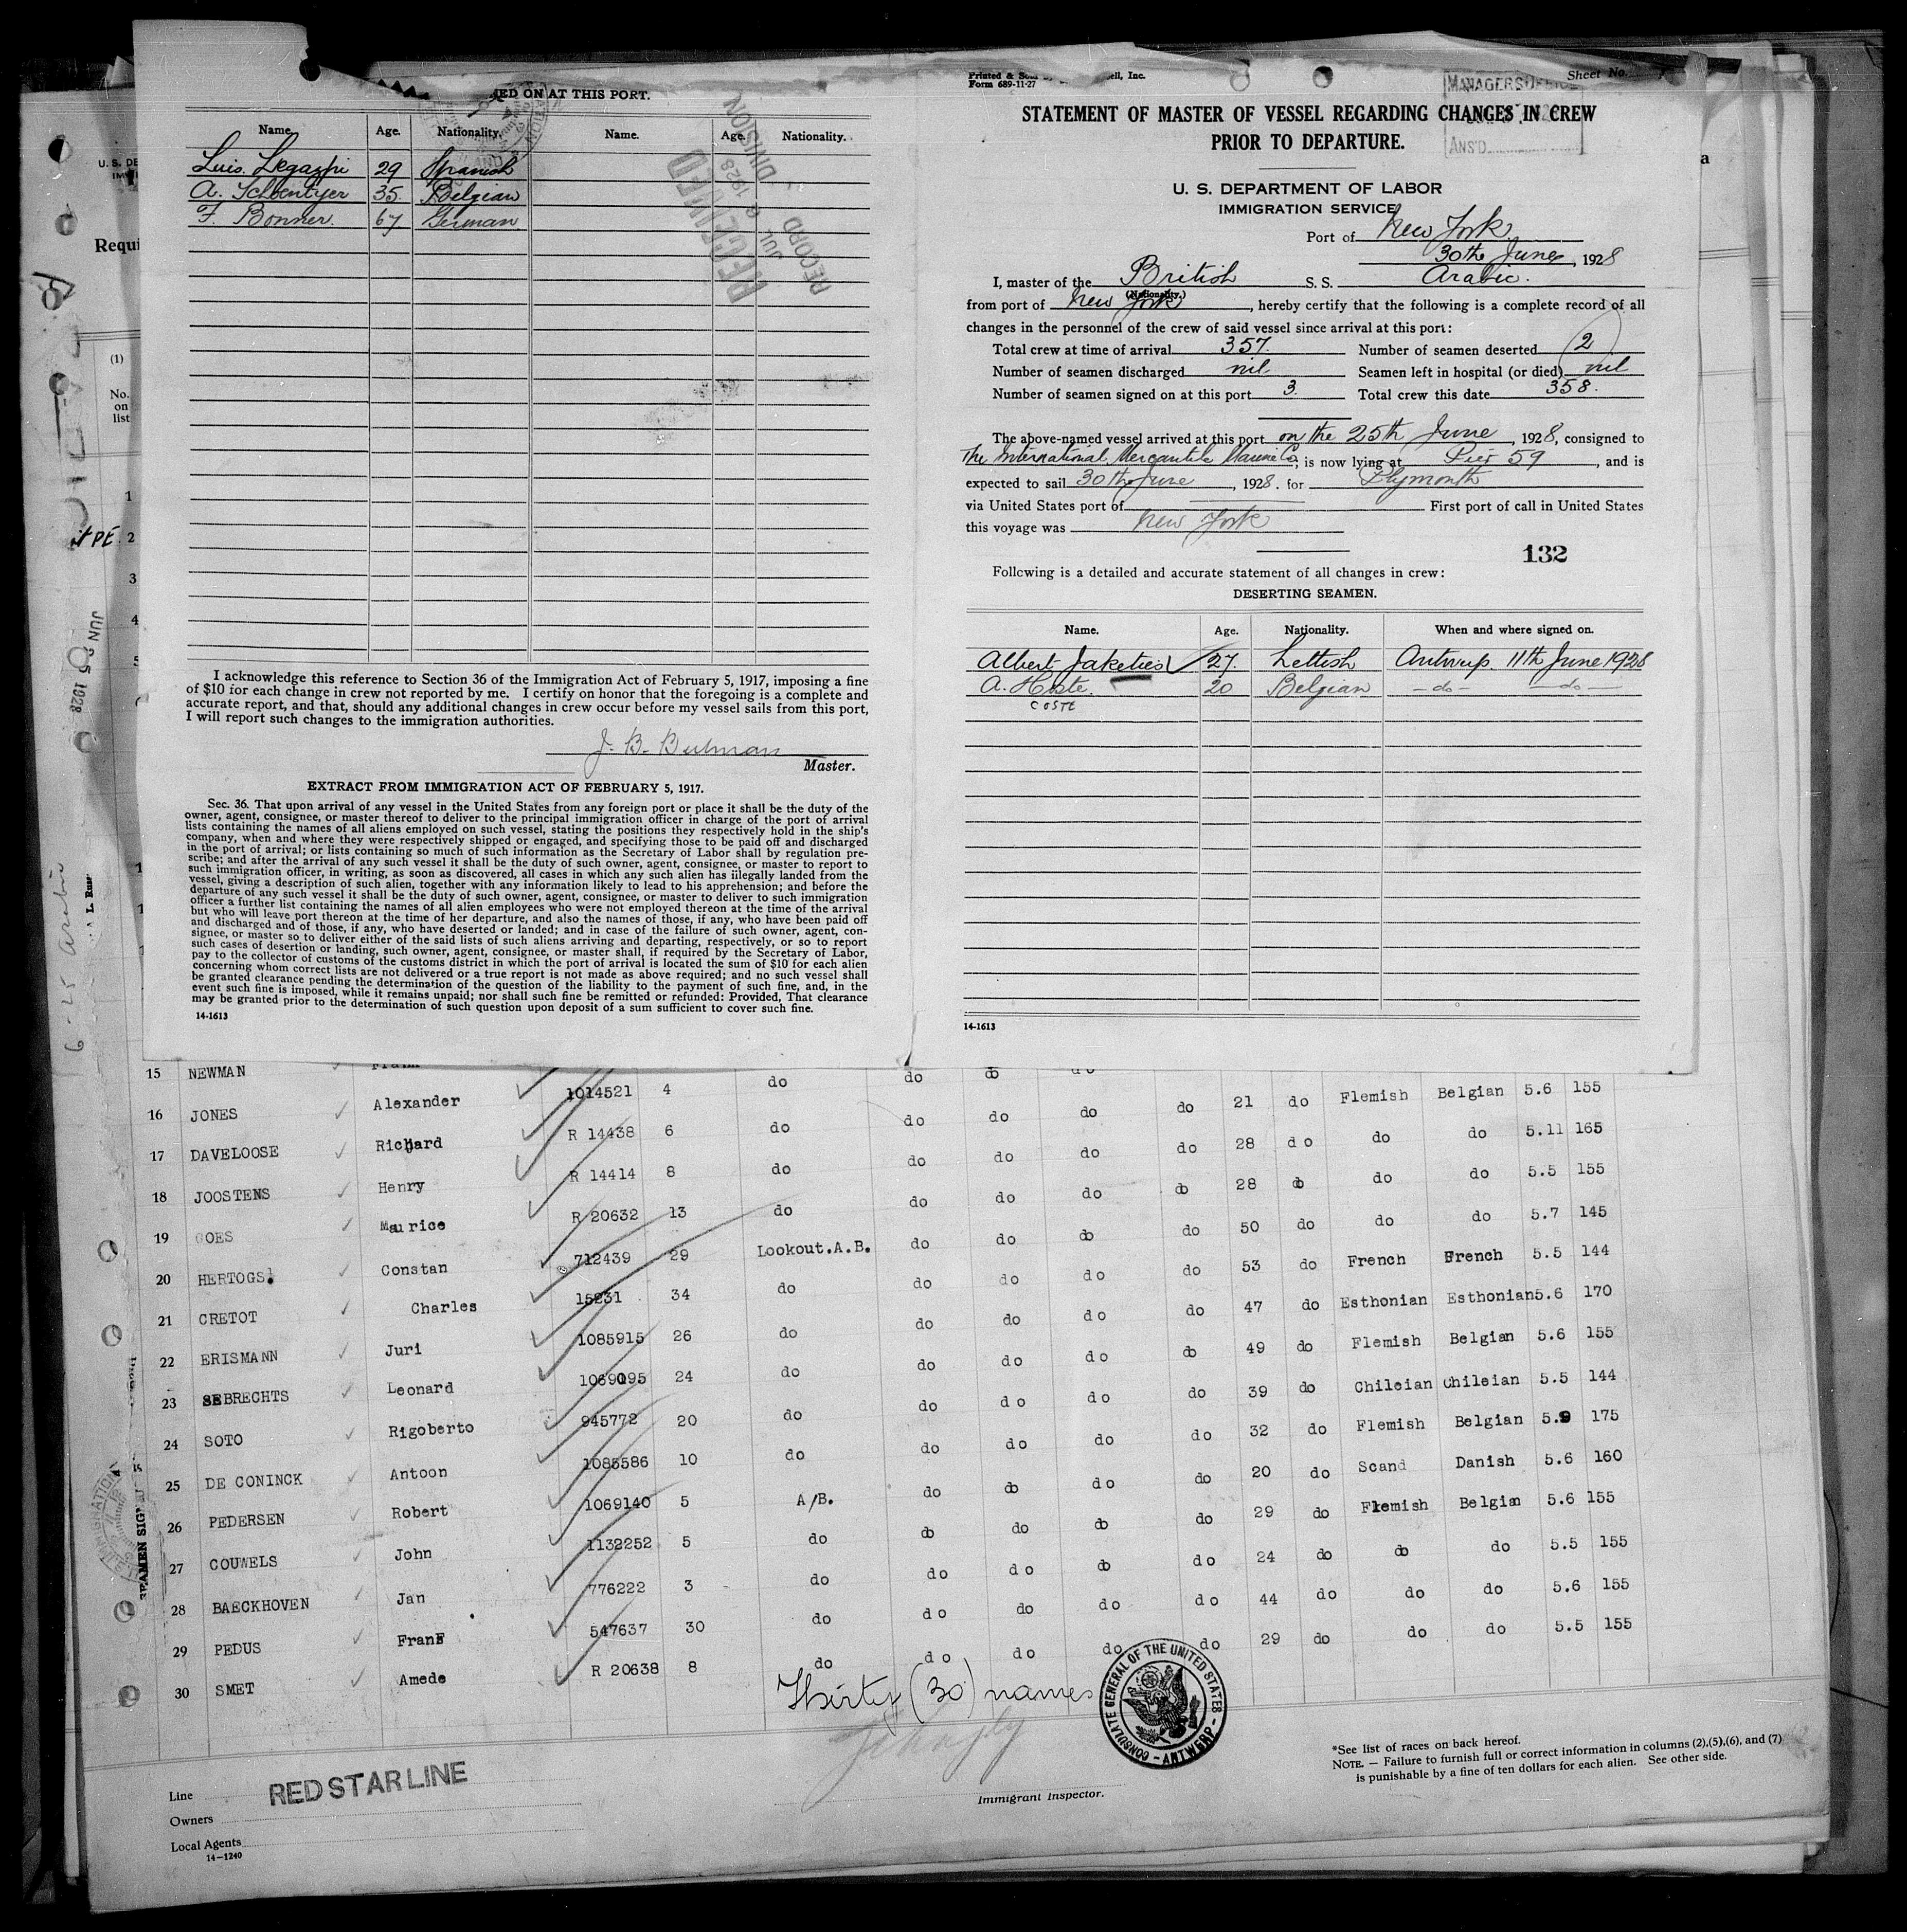 ED ON AT THIS PORT.
Name. Age. Nationality. Name. Age. Nationality.
Luis Legazpi 29 Spanish
A. Schoentyer 35. Belgian
F. Bonner. 67 German
RECEIVED
JUL 1928
RECORD DIVISION
I acknowledge this reference to Section 36 of the Immigration Act of February 5, 1917, imposing a fine
of $10 for each change in crew not reported by me. I certify on honor that the foregoing is a complete and
accurate report, and that, should any additional changes in crew occur before my vessel sails from this port,
I will report such changes to the immigration authorities.
J. B. Bulman
Master.
EXTRACT FROM IMMIGRATION ACT OF FEBRUARY 5, 1917.
Sec. 36. That upon arrival of any vessel in the United States from any foreign port or place it shall be the duty of the
owner, agent, consignee, or master thereof to deliver to the principal immigration officer in charge of the port of arrival
lists containing the names of all aliens employed on such vessel, stating the positions they respectively hold in the ship's
company, when and where they were respectively shipped or engaged, and specifying those to be paid off and discharged
in the port of arrival; or lists containing so much of such information as the Secretary of Labor shall by regulation pre-
scribe; and after the arrival of any such vessel it shall be the duty of such owner, agent, consignee, or master to report to
such immigration officer, in writing, as soon as discovered, all cases in which any such alien has illegally landed from the
vessel, giving a description of such alien, together with any information likely to lead to his apprehension; and before the
departure of any such vessel it shall be the duty of such owner, agent, consignee, or master to deliver to such immigration
officer a further list containing the names of all alien employees who were not employed thereon at the time of the arrival
but who will leave port thereon at the time of her departure, and also the names of those, if any, who have been paid off
and discharged and of those, if any, who have deserted or landed; and in case of the failure of such owner, agent, con-
signee, or master so to deliver either of the said lists of such aliens arriving and departing, respectively, or so to report
such cases of desertion or landing, such owner, agent, consignee, or master shall, if required by the Secretary of Labor,
pay to the collector of customs of the customs district in which the port of arrival is located the sum of $10 for each alien
concerning whom correct lists are not delivered or a true report is not made as above required; and no such vessel shall
be granted clearance pending the determination of the question of the liability to the payment of such fine, and, in the
event such fine is imposed, while it remains unpaid; nor shall such fine be remitted or refunded: Provided, That clearance
may be granted prior to the determination of such question upon deposit of a sum sufficient to cover such fine.
14-1613
Printed & Sold ell, Inc.
Form 689-11-27
Sheet No.
MANAGERS OFFICE
ANS'D
STATEMENT OF MASTER OF VESSEL REGARDING CHANGES IN CREW
PRIOR TO DEPARTURE.
U. S. DEPARTMENT OF LABOR
IMMIGRATION SERVICE
Port of New York
30th June, 1928
I, master of the British S. S. Arabic.
(Nationality.)
from port of New York, hereby certify that the following is a complete record of all
changes in the personnel of the crew of said vessel since arrival at this port:
Total crew at time of arrival 357. Number of seamen deserted 2
Number of seamen discharged nil Seamen left in hospital (or died) nil
Number of seamen signed on at this port 3. Total crew this date 358.
The above-named vessel arrived at this port on the 25th June, 1928, consigned to
The International Mercantile Marine Co, is now lying at Pier 59, and is
expected to sail 30th June, 1928. for Plymouth
via United States port of First port of call in United States
this voyage was New York
132
Following is a detailed and accurate statement of all changes in crew:
DESERTING SEAMEN.
Name. Age. Nationality. When and where signed on.
Albert Jaketied 27. Lettish Antwerp 11th June 1928
A. Hoste. 20 Belgian -do- -do-
COSTE
14-1613
U. S. DE
Requi
(1)
No. on list
1
PE. 2
3
4
5
JUN 25 1928
6-25 Arabic
SEAMEN SIGN
15 NEWMAN Frank do do do do
16 JONES Alexander 1014521 4 do do do do do 21 do Flemish Belgian 5.6 155
17 DAVELOOSE Richard R 14438 6 do do do do do 28 do do do 5.11 165
18 JOOSTENS Henry R 14414 8 do do do do do 28 do do do 5.5 155
19 GOES Maurice R 20632 13 do do do do do 50 do do do 5.7 145
20 HERTOGS Constan 712439 29 Lookout.A.B. do do do do 53 do French French 5.5 144
21 CRETOT Charles 15231 34 do do do do do 47 do Esthonian Esthonian 5.6 170
22 ERISMANN Juri 1085915 26 do do do do do 49 do Flemish Belgian 5.6 155
23 SEBRECHTS Leonard 1069095 24 do do do do do 39 do Chileian Chileian 5.5 144
24 SOTO Rigoberto 945772 20 do do do do do 32 do Flemish Belgian 5.9 175
25 DE CONINCK Antoon 1085586 10 do do do do do 20 do Scand Danish 5.6 160
26 PEDERSEN Robert 1069140 5 A/B. do do do do 29 do Flemish Belgian 5.6 155
27 COUWELS John 1132252 5 do do do do do 24 do do do 5.5 155
28 BAECKHOVEN Jan 776222 3 do do do do do 44 do do do 5.6 155
29 PEDUS Frans 547637 30 do do do do do 29 do do do 5.5 155
30 SMET Amede R 20638 8 do do do do
Thirty (30) names
CONSULATE GENERAL OF THE UNITED STATES - ANTWERP -
Line RED STAR LINE
Owners
Local Agents
14-1240
Immigrant Inspector.
*See list of races on back hereof.
NOTE. — Failure to furnish full or correct information in columns (2),(5),(6), and (7)
is punishable by a fine of ten dollars for each alien. See other side.